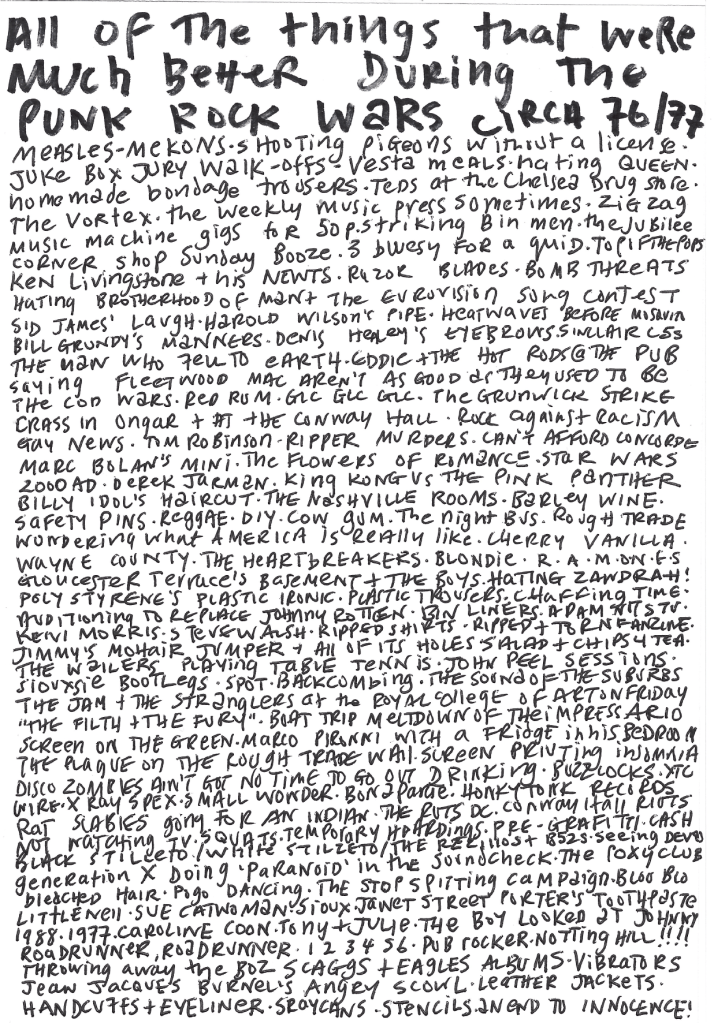 All of The things that weRe
Much BeTTeR During The
PUNK ROCK WARS circA 76/77
measles-mekons.shooting pigeons without a license.
Juke Box Jury walk-offs-Vesta meals.hating QUEEN.
home made bondage trousers.Teds at the Chelsea Drug store.
The Vortex.the weekly music press sometimes.Zig Zag
music machine gigs for 50p.striking Bin men.the Jubilee
corner shop Sunday Booze.3 bwesy for a quid.Top if THE POPS
Ken Livingstone + his NEWTS.RaZoR BLADES.BoMB THREATS
Hating BROTHERHOOD of man + The Eurovision Song ConTEST
SID JAMES' Laugh.Harold WILSON'S PIPE.HEATWAVES BEFORE
BILL GRUNDY'S MANNERS.DENIS HEALEY'S EYEBROWS.SINCLAIR C5s
THE MAN WHO FELL TO EARTH.EDDIE + THE HOT RODS@THE PUB
saying FLEETWOOD MAC AREN'T AS GOOD as THEY USED TO BE
THE COD WARS.RED RUM.GLC GLC GLC.The GRUNWICK STRIKE
CRASS in Ongar + AT THE CONWAY HALL.Rock against RACISM
Gay News.TOM ROBINSON-RIPPER MURDERS.CAN'T AFFORD CONCORDE
MARC BOLAN'S MINI.The FLOWERS OF ROMANCE.STAR WARS
2000 AD.DEREK JARMAN.King KONG VS THE PINK PANTHER
BILLY IDOL'S HAIRCUT.THE NASHVILLE ROOMS.BARLEY WINE.
Safety PINS.Reggae.DIY.COW gum.The night BUS.Rough TRADE
Wondering what AMERICA is really like.CHERRY VANILLA.
WAYNE COUNTY.THE HEARTBREAKERS.BLONDIE.R.A.M.O.N.E.S
Gloucester Terrace's Basement + THE BOYS.HATING ZANDRA H!
POLY STYRENE'S PLASTIC IRONIC.PLASTIC TROUSERS.CHAFFING TIME.
AUDITIONING TO REPLACE JOHNNY ROTTEN.BIN LINERS.ADAM ANTS TV.
KENI MORRIS.STEVE WALSH.RIPPED SHIRTS.RIPPED + TORN FANZINE.
JIMMY'S MOHAIR JUMPER + ALL OF ITS HOLES SALAD + CHIPS 4 TEA.
THE WAILERS PLAYING TABLE TENNIS.JOHN PEEL SESSIONS.
Siouxsie BOOTLEGS.SPOT.BACKCOMBING.THE SOUND OF THE SUBURBS
THE JAM + THE STRANGLERS at the ROYAL COLLEGE OF ART ON FRIDAY
"THE FILTH + THE FURY".BOAT TRIP MELTDOWN OF THE IMPRESSARIO
SCREEN ON THE GREEN.MARCO PIRONNI WITH a FRIDGE in his BEDROOM
THE PLAGUE ON THE ROUGH TRADE WALL.SCREEN PRINTING INSOMNIA
DISCO ZOMBIES AIN'T GOT NO TIME TO GO OUT DRINKING.BUZZCOCKS.XTC
WIRE.X RAY SPEX.SMALL WONDER.BONAPARTE.HONKY TONK RECORDS
RAT SCABIES going FOR AN INDIAN.THE RUTS DC.CONWAY HALL RIOTS
NOT WATCHING TV.SQUATS.TEMPORARY HOARDINGS.PRE-GRAFITTI.CASH
BLACK STILLETO/WHITE STILLETO/THE REZILLOS + B52S.Seeing DEVO
generation X Doing 'PARANOID' in the SOUNDCHECK.THE ROXY CLUB
bleached HAIR.Pogo DANCING.THE STOP SPITTING CAMPAIGN.BLOO BLO
LITTLE NELL.SUE CATWOMAN.SIOUX.JANET STREET PORTER'S TOOTHPASTE
1988.1977.CAROLINE COON.TONY + JULIE.THE BOY LOOKED AT JOHNNY
ROADRUNNER, ROADRUNNER.1 2 3 4 5 6.PUB ROCKER.NOTTING HILL!!!!
THROWING away the BOZ SCAGGS + EAGLES ALBUMS.VIBRATORS
JEAN JACQUES BURNEL'S ANGRY SCOWL.LEATHER JACKETS.
HANDCUFFS + EYELINER.SROYCANS.STENCILS.AN END TO INNOCENCE!